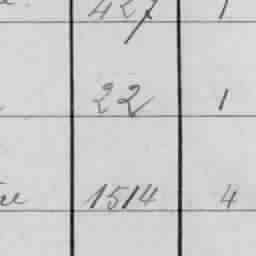 427 1
22 1
1514 4